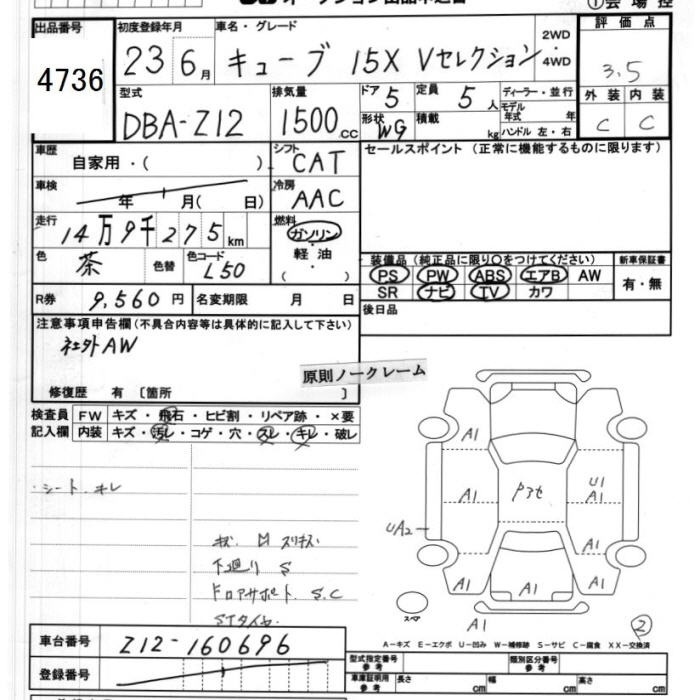 出品番号 初度登録年月 車名・グレード 評価点
4736 23 6月 キューブ 15X Vセレクション 2WD 4WD 3.5
型式 排気量 ドア 定員 ディーラー・並行 外装 内装
DBA-Z12 1500cc 5 5人 モデル年式 年 C C
形状 WG 積載 kg ハンドル 左・右
車歴 自家用・( ) シフト CAT セールスポイント(正常に機能するものに限ります)
車検 年 月( 日) 冷房 AAC
走行 14万9千275km 燃料 ガソリン・軽油・( )
色 茶 色替 色コード L50
装備品(純正品に限り〇をつけてください) 新車保証書
PS PW ABS エアB AW 有・無
SR ナビ TV カワ
R券 9,560円 名変期限 月 日 後日品
注意事項申告欄(不具合内容等は具体的に記入して下さい)
社外AW
原則ノークレーム
修復歴 有 〔箇所 〕
検査員記入欄 FW キズ・飛石・ヒビ割・リペア跡・×要
内装 キズ・汚レ・コゲ・穴・スレ・キレ・破レ
・シート キレ
キズ M スリキズ
下廻り S
ドロアサポート S.C
STタイヤ
A1
A1 U1
A1
UA2
A1
A1 A1 A1
スペア A1 2
A-キズ E-エクボ U-凹み W-補修跡 S-サビ C-腐食 XX-交換済
車台番号 Z12-160696
登録番号
型式指定番号 参考 類別区分番号 参考
車庫証明用 参考 長さ cm 幅 cm 高さ cm